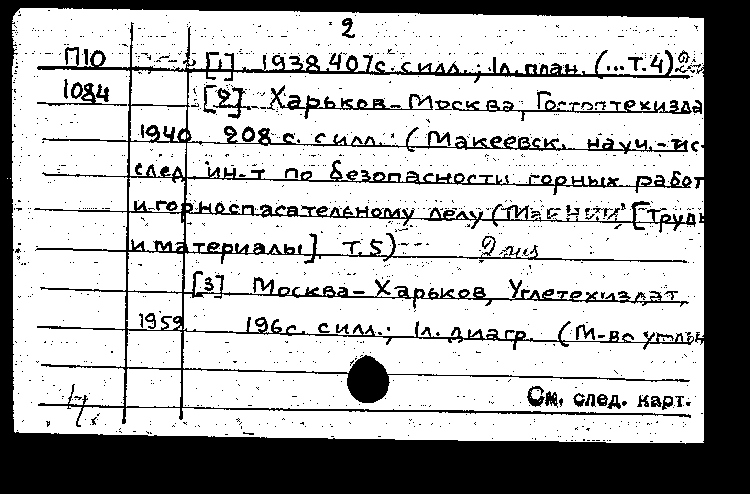 2
П10 [1]. 1938. 407с. силл.; 1л. план. (...Т.4) 2
1084 [2]. Харьков-Москва, Гостоптехизда
1940. 208 с. силл. (Макеевск. науч.-ис-
след. ин-т по безопасности горных работ
и горноспасательному делу (МакНИИ) [Труды
и материалы]. Т.5)
[3] Москва-Харьков, Углетехиздат,
1959 196с. силл.; 1л. диагр. (М-во угольн
См. след. карт.